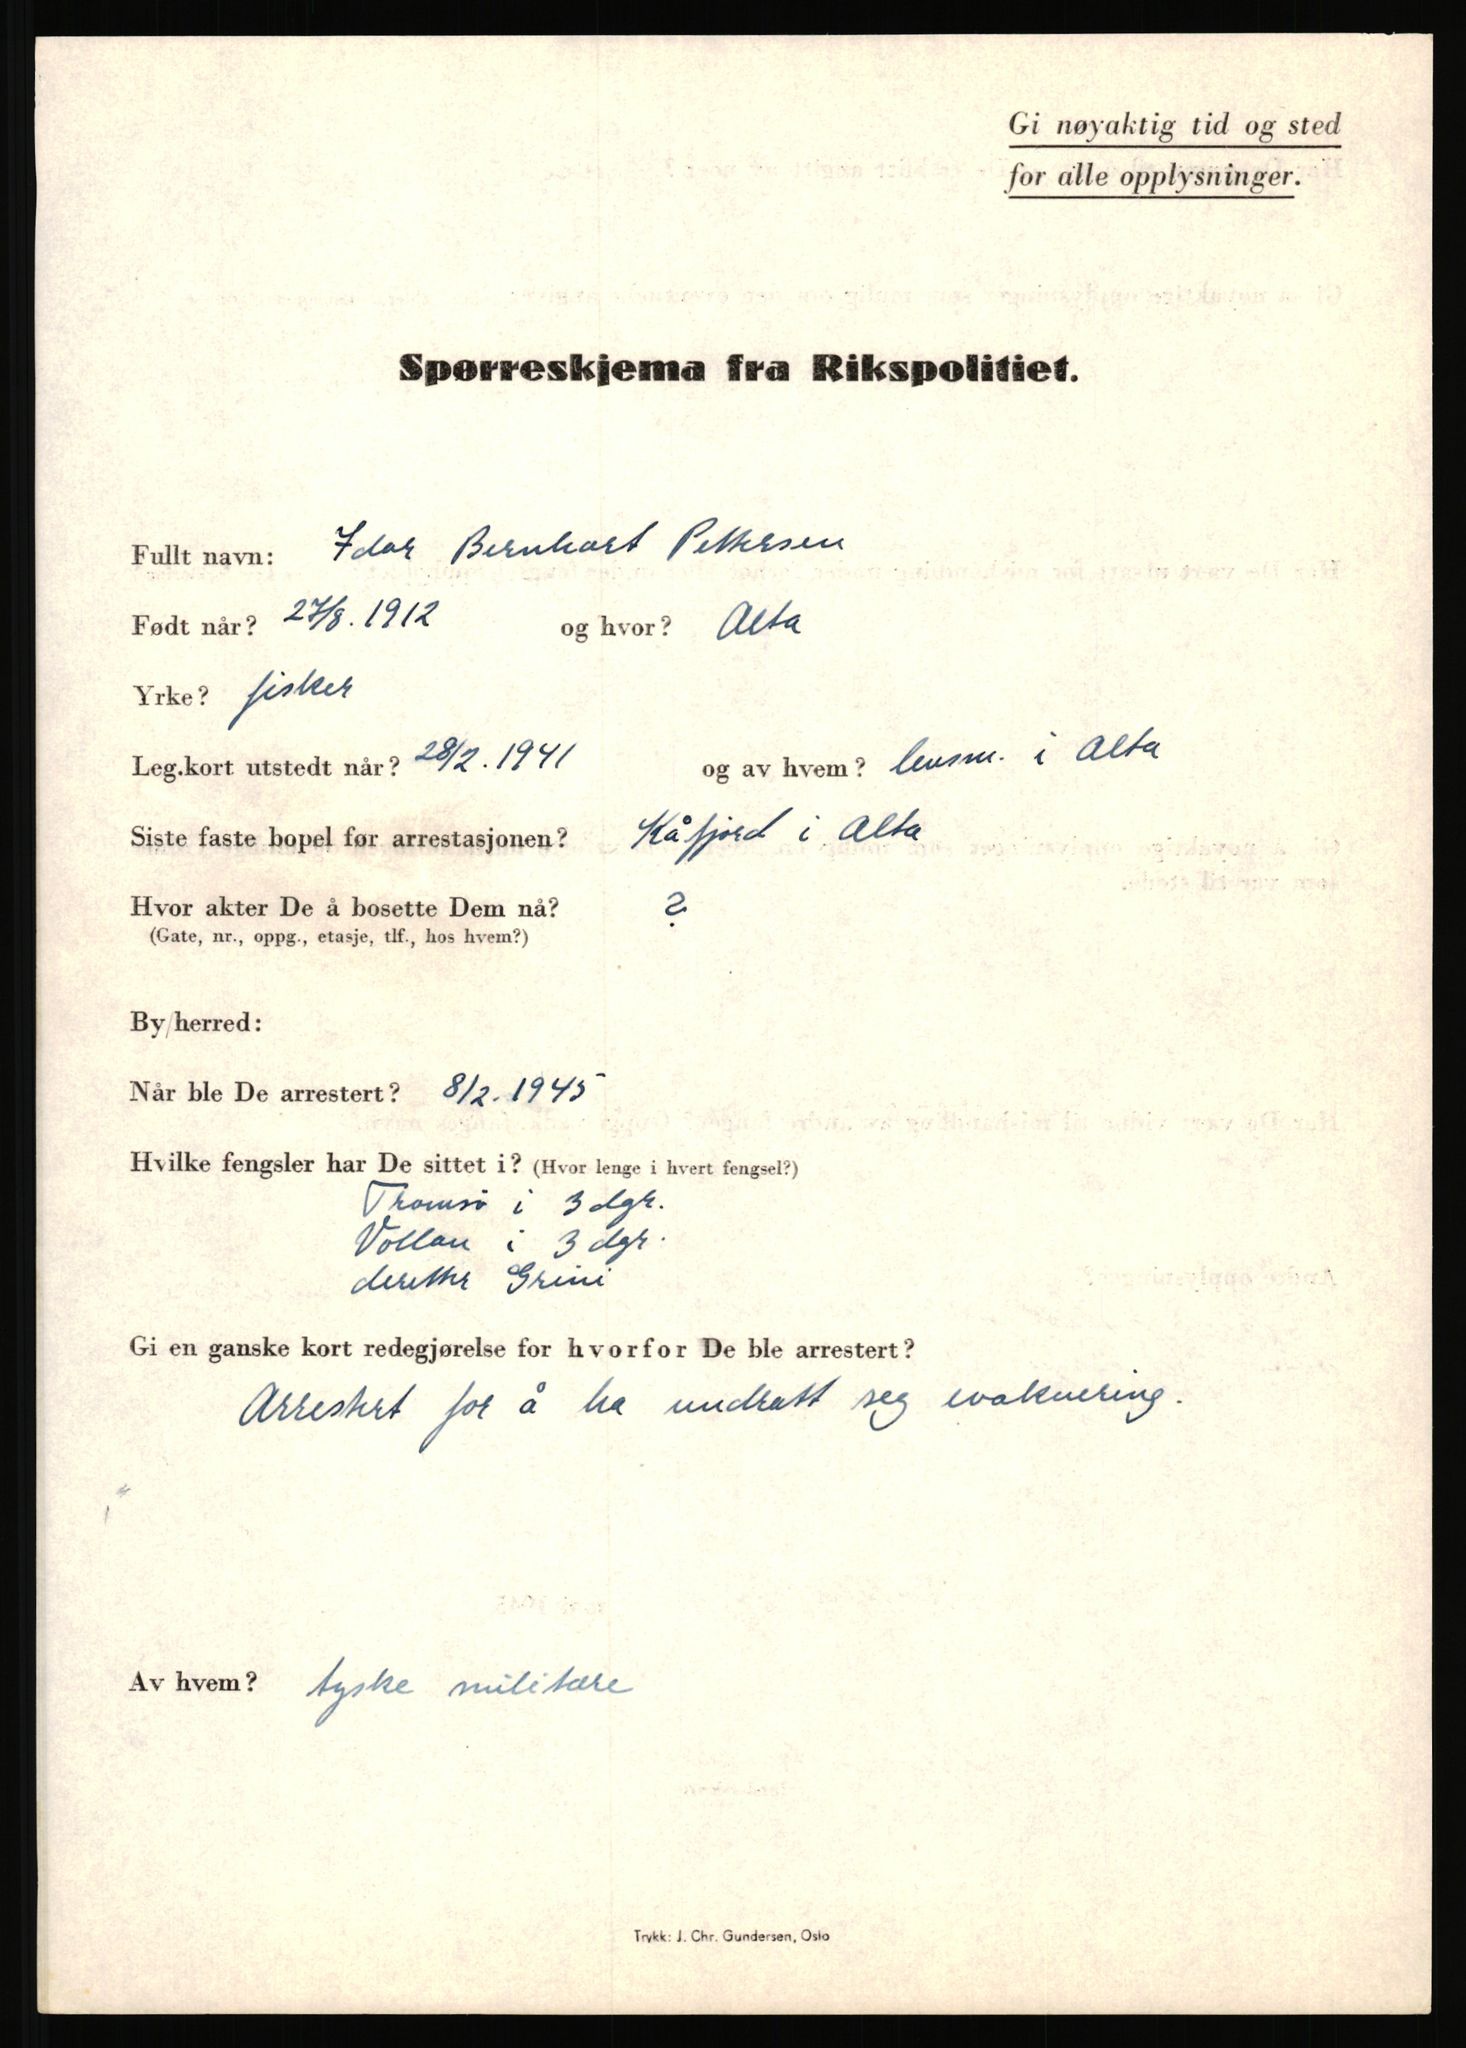 Gi nøyaktig tid og sted
for alle opplysninger.
Spørreskjema fra Rikspolitiet.
Fullt navn: Idar Bernhart Pettersen
Født når? 27/8. 1912 og hvor? Alta
Yrke? fisker
Leg.kort utstedt når? 28/2. 1941 og av hvem? lensm. i Alta
Siste faste bopel før arrestasjonen? Kåfjord i Alta
Hvor akter De å bosette Dem nå? ?
(Gate, nr., oppg., etasje, tlf., hos hvem?)
By/herred:
Når ble De arrestert? 8/2. 1945
Hvilke fengsler har De sittet i? (Hvor lenge i hvert fengsel?)
Tromsö i 3 dgr.
Vollan i 3 dgr.
deretter Grini
Gi en ganske kort redegjørelse for hvorfor De ble arrestert?
Arrestert for å ha undratt seg evakuering.
Av hvem? tyske militære
Trykk: J. Chr. Gundersen, Oslo